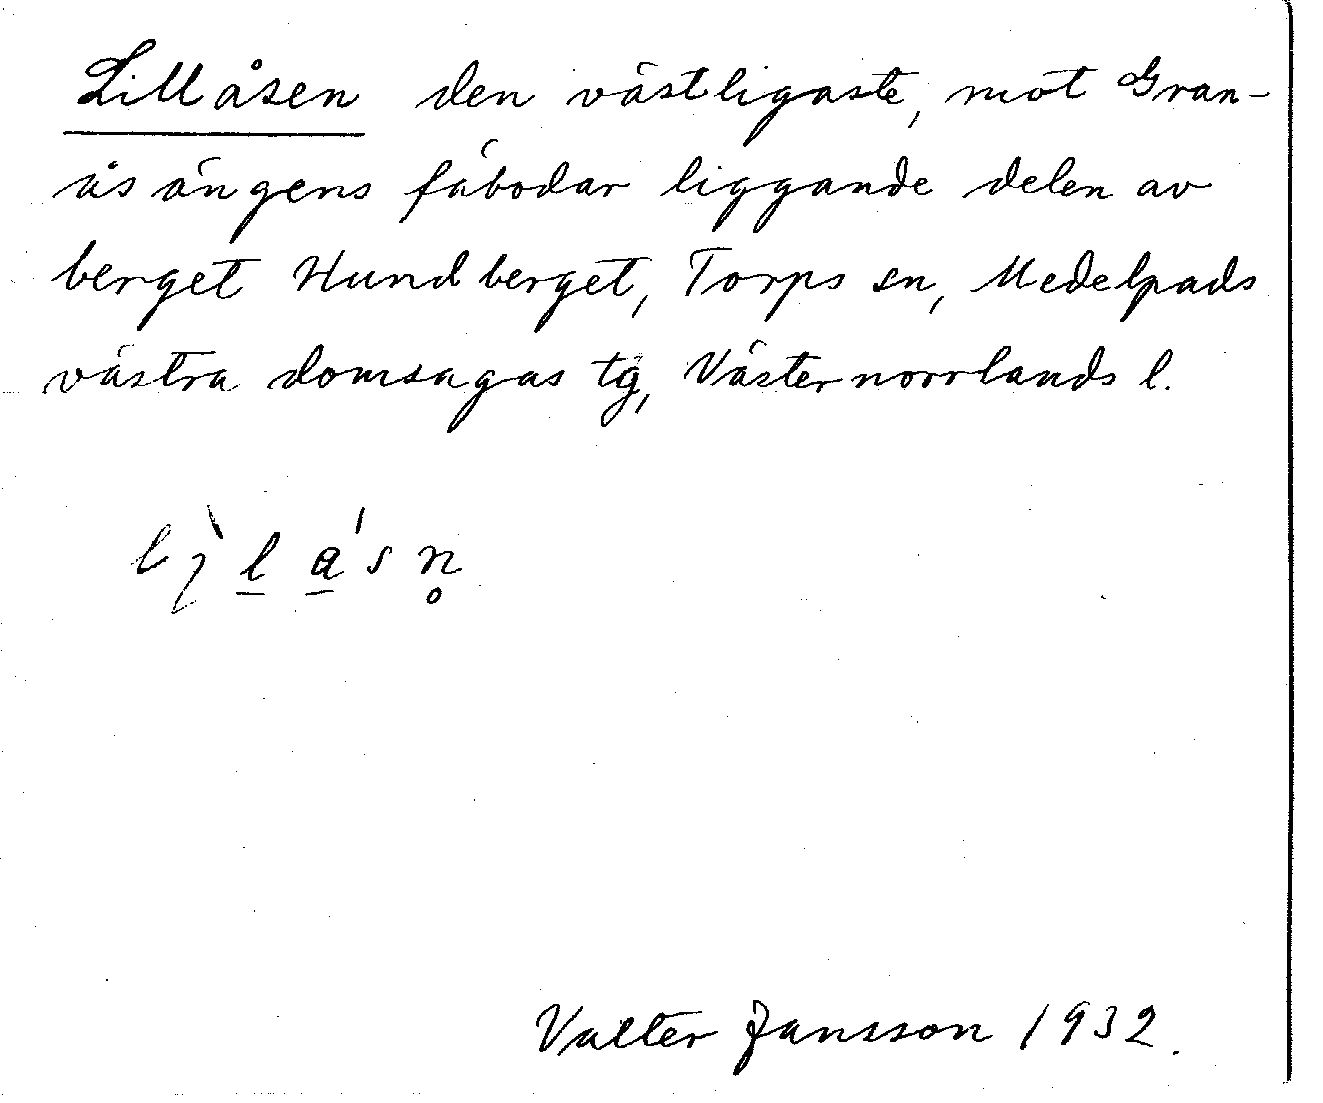 Lillåsen den västligaste, mot Gran-
åsängens fäbodar liggande delen av
berget Hundberget, Torps sn, Medelpads
västra domsagas tg, Västernorrlands l.
Valter Jansson 1932.